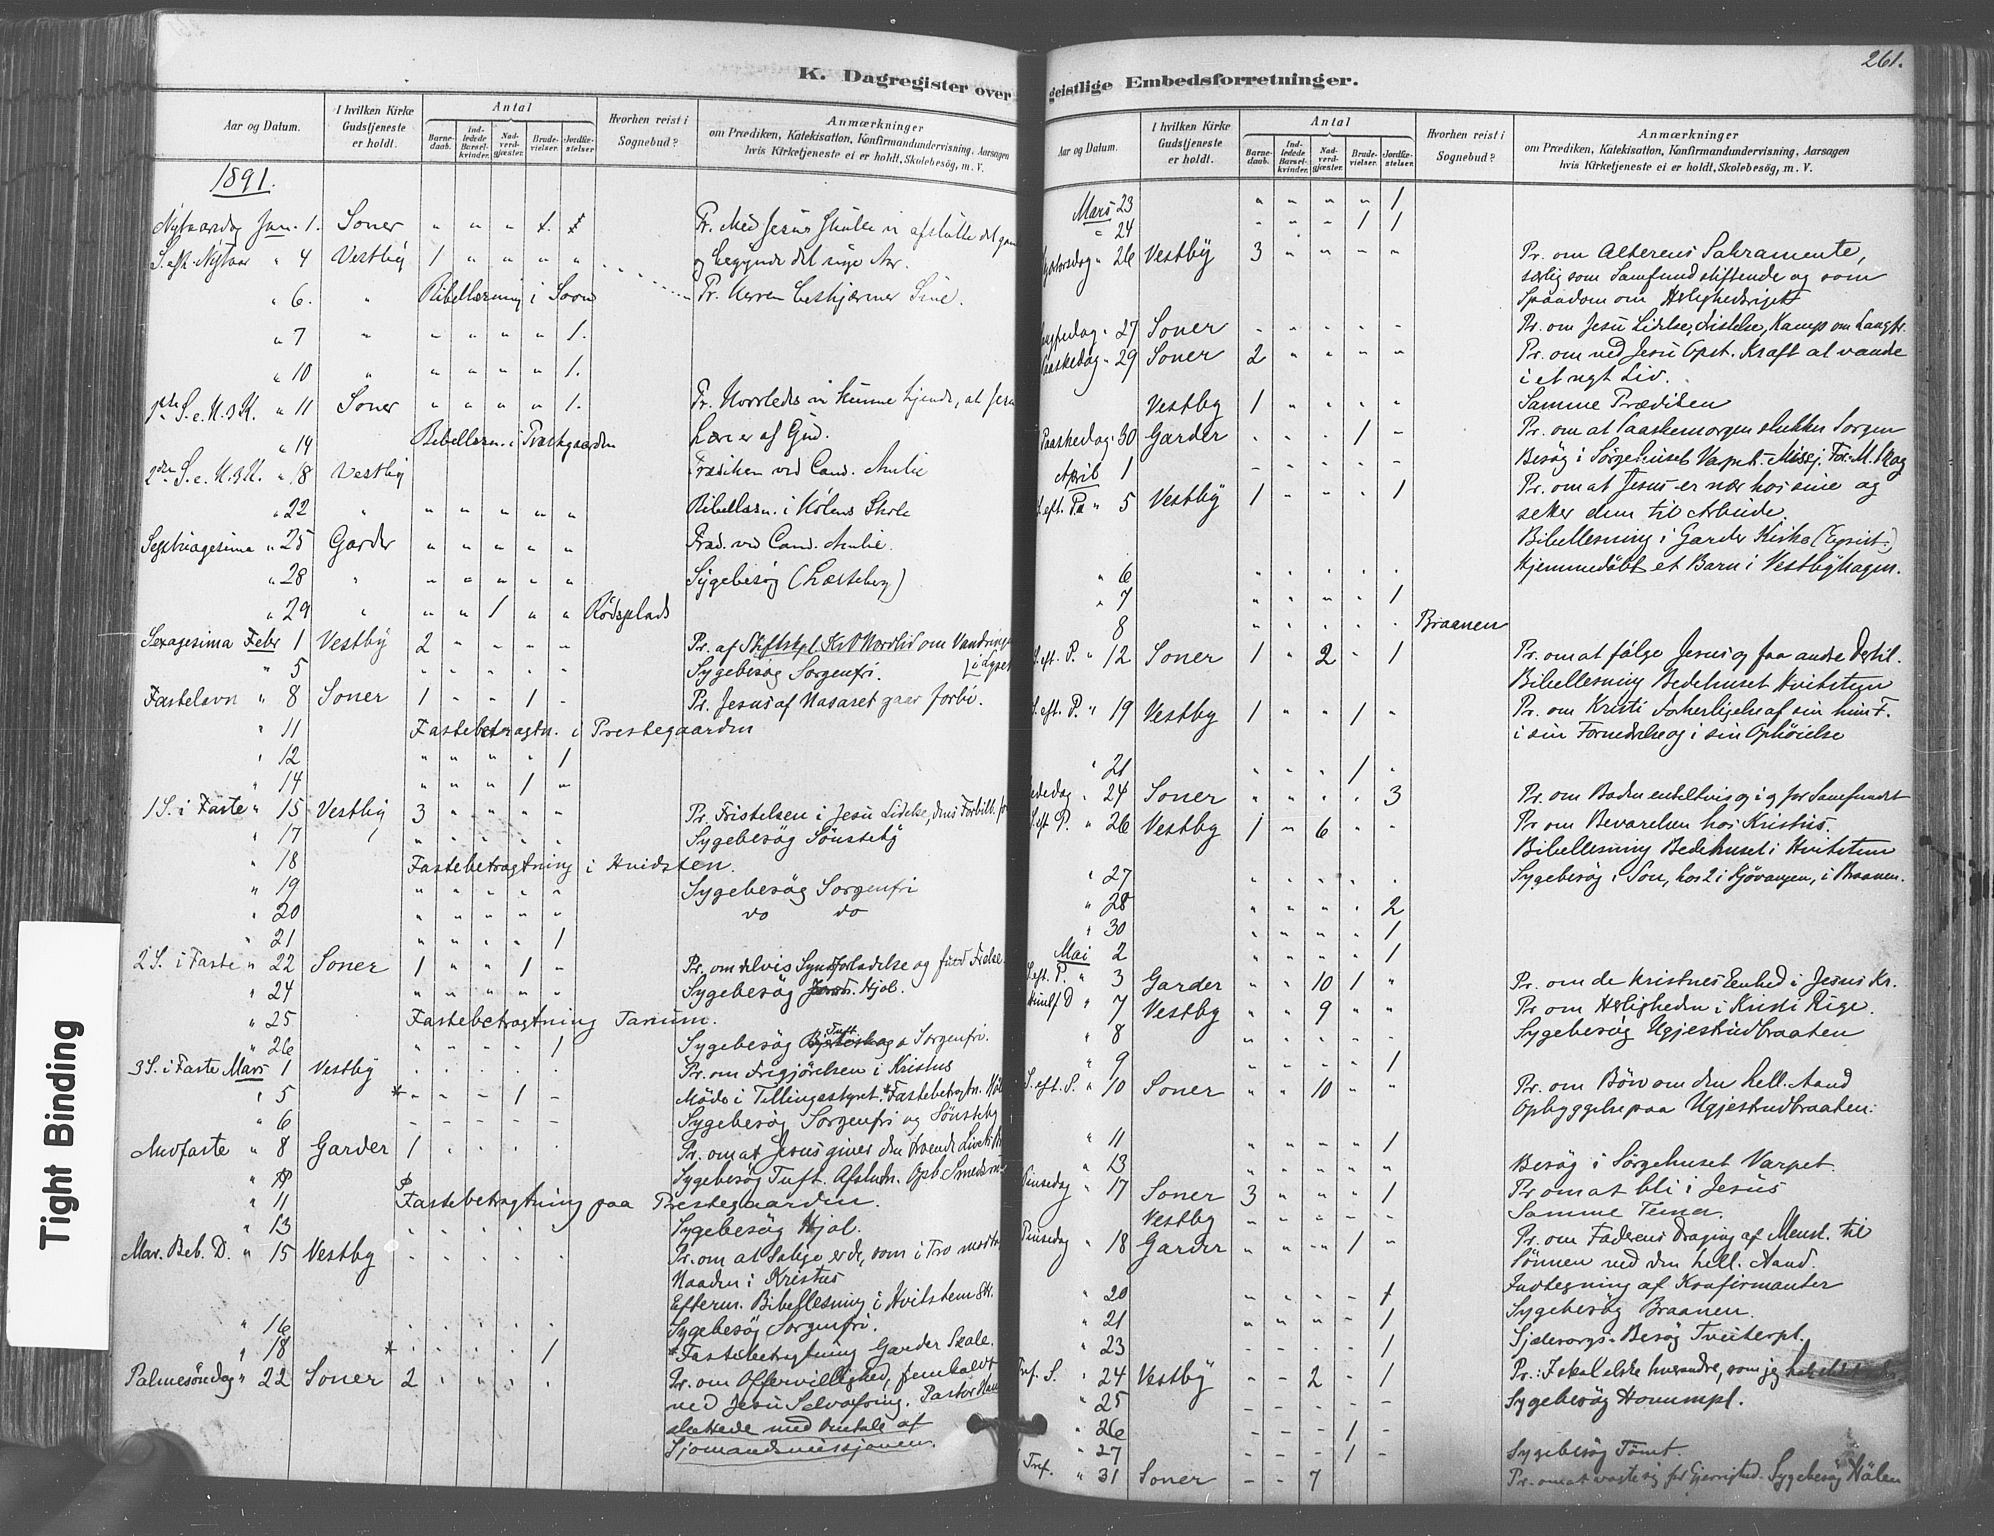 K. Dagregister over
Aar og Datum.
I hvilken Kirke Gudstjeneste er holdt.
Antal
Barne-daab.
Ind-ledede Barsel-kvinder.
Nad-verd-gjæster.
Brude-vielser.
Jordfæ-stelser
Hvorhen reist i Sognebud?
Anmærkninger
om Prædiken, Katekisation, Konfirmandundervisning, Aarsagen
hvis Kirketjeneste ei er holdt, Skolebesøg, m. V.
1891.
Nytaarsdag Jan. 1. Soner " " " 1. 1 Pr. Med Jesus skulle vi afslutte det gam
S. eft. Nytaar " 4 Vestby 1 " " " " og begynde det nye Aar.
" 6. " Bibellæsning i Soon Pr. Herren beskjærmer Sine.
" 7 " " " " " 1.
" 10 " " " " " 1.
1ste S. e. H. 3 K. " 11 Soner " " " " 1. Pr. Hvorledes vi kunne kjende, at Jesu
" 14 Bibellæsn. i Præstgaarden Lære er af Gud.
2den S. e. H. 3 K. " 18 Vestby Prædiken ved Cand. Amlie
" 22 " " " " " " Bibellæsn. i Kølens Skole
Septuagesima " 25 Garder " " " " " Præd. ved Cand. Amlie.
" 28 " " " " " " Sygebesøg (Læsteberg)
" 29 " " " 1 " " Rødsplads
Sexagesima Febr 1 Vestby 2 " " " " Pr. af Stiftskpl. Nordlid om Vandringen
" 5 Sygebesøg Sorgenfri.
Fastelavn " 8 Soner 1 " " 1 " Pr. Jesus af Nasaret gaar forbi.
" 11 Fastebetragtn. i Prestegaarden
" 12 " " " " 1
" 14 " " " 1 "
1 S. i Faste " 15 Vestby 3 " " " " Pr. Fristelsen i Jesu Lidelse, dens Forbill. for
" 17 " " " " " Sygebesøg Sønsteby
" 18 Fastebetragtning i Hvidsten.
" 19 " " " " " Sygebesøg Sorgenfri
" 20 " " " " " do do
" 21 " " " " 1
2 S. i Faste " 22 Soner 1 " " 1 " Pr. om delvis Syndsforladelse og fuld Frelse.
" 24 Sygebesøg Hjol.
" 25 Fastebetragtning Tanum.
" 26 " " " " 1 Sygebesøg Tuft o Sorgenfri.
3 S. i Faste Mars 1 Vestby Pr. om Frigjørelsen i Kristus
" 5 * " " " 1 " Møde i Tillingsstyret. * Fastebetragtn. Høl
" 6 - - - - - Sygebesøg Sorgenfri og Sønsteby
Midfaste " 8 Garder 1 " " " Pr. om at Jesus giver den Livets
Sygebesøg Tuft. Afslutn.
" 11 Fastebetragtning paa Prestegaarden.
" 13 Sygebesøg Hjol.
Mar. Beb. D. " 15 Vestby Pr. om at Salige er de, som i Tro modta
Naaden i Kristus
Efterm. Bibellesning i Hvitsten Sk.
" 16 Sygebesøg Sorgenfri.
" 18 * " " " " 1 * Fastebetragtning Garder Skole.
Palmesöndag " 22 Soner 2 " " " " Pr. om Offervillighed, fremkaldt
ved Jesu Selvofring. Pastor
sluttede med Omtale af
Sjømandsmissjonen.
Tight Binding
261.
geistlige Embedsforretninger.
Aar og Datum.
I hvilken Kirke Gudstjeneste er holdt.
Antal
Barne-daab.
Ind-ledede Barsel-kvinder.
Nad-verd-gjæster.
Brude-vielser.
Jordfæ-stelser.
Hvorhen reist i Sognebud?
Anmærkninger
om Prædiken, Katekisation, Konfirmandundervisning, Aarsagen
hvis Kirketjeneste ei er holdt, Skolebesøg, m. V.
Mars 23 " " " " 1
" 24 " " " 1 1
" 26 Vestby 3 " " " " Pr. om Alterens Sakramente,
særlig som Samfundsstiftende og som
Spaadom om Herlighedsriget
" 27 Soner - " " " " Pr. om Jesu Lidelse, Kamp om Langfr.
Paaskedag " 29 Soner 2 " " " " Pr. om ved Jesu Opst. Kraft at vandre
i et nyt Liv.
Vestby 1 " " " " Samme Prædiken
Paaskedag " 30 Garder " " " 1 - Pr. om at Paaskemorgen slukker Sorgen
April 1 Besøg i Sørgehuset Varpet.
S. eft. Pa " 5 Vestby 1 " " " 1 Pr. om at Jesus er nær hos sine og
setter dem til Arbeide.
Bibellesning i Garder Kirke
" 6 Hjemmedøbt et Barn i Vestbyhagen.
" 7 " " " " 1
8 " " " " " Braanen
S. eft. P. " 12 Soner 1 " 2 " 1 Pr. om at følge Jesus og faa andre
Bibellesning Bedehuset Hvitsten
S. eft. P. " 19 Vestby 1 " " 1 " Pr. om Kristi Forherligelse af sin him F.
i sin Fornedrelse og i sin Ophøielse
" 21 " " " 1 "
Bededag " 24 Soner " " " " 3 Pr. om Boden enkeltvis og for Samfundet
S. eft P. " 26 Vestby 1 " 6 " " Pr om Bevarelsen hos Kristus.
Bibellesning Bedehuset i Hvitsten
" 27 Sygebesøg i Son, hos 2 i Gjøvangen, i Braanen.
" 28 " " " " 2
" 30 " " " " 1
Mai 2 " " " " 1
S. eft. P. " 3 Garder " " 10 1 " Pr. om de kristnes Enhed i Jesus Kr.
Himlf D " 7 Vestby " " 9 " " Pr om Herligheden i Kristi Rige.
" 8 Sygebesøg Ugjestrudbraaten
" 9 " " " " 1
S. eft. P. " 10 Soner " " 10 " " Pr. om Bøn om den hell. Aand
Opbyggelse paa Ugjestrudbraaten.
" 11 " " " " 1
" 13 " " " " " Besøg i Sørgehuset Varpet.
Pinsedag " 17 Soner 3 " " " 1 Pr om at bli i Jesus
Vestby - - - - - Samme Tema.
Pinsedag " 18 Garder " " " 1 " Pr. om Faderens Draging af Mensk. til
Sønnen ved den hell. Aand.
Indtegning af Konfirmanter
" 20 Sygebesøg Braanen.
" 21 " " " " 1
" 23 " " " " 1 Sjælesorgs-Besøg Tveiterpl.
Tref. S. " 24 Vestby - - 2 - 1 Pr.: I skal elske hverandre, som jeg har elsket
" 25 Sygebesøg Hounmpl.
" 26 - - - 1 -
" 27 - - - 1 - Sygebesøg Tømt.
Tref. " 31 Soner - - 7 Pr. om at vogte sig for Gjerrighed. Sygebesøg Hølen